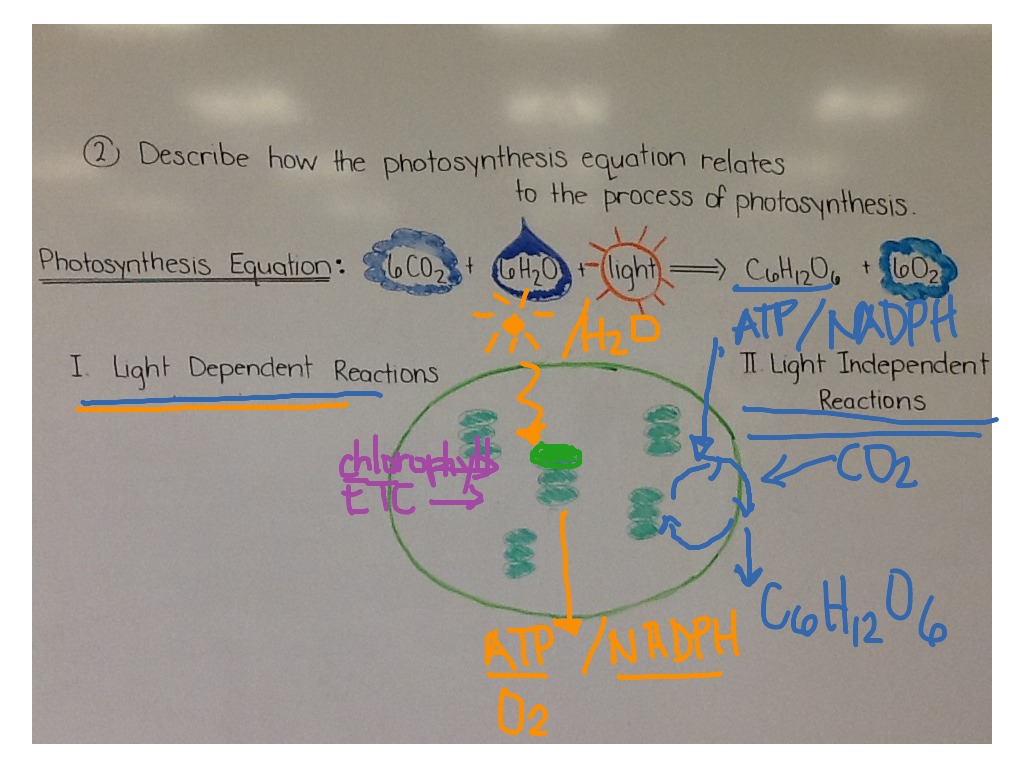 ② Describe how the photosynthesis equation relates
to the process of photosynthesis.
Photosynthesis Equation: 6CO2 + 6H2O + light ⟹ C6H12O6 + 6O2
/H2O
ATP/NADPH
I. Light Dependent Reactions
II Light Independent
Reactions
chlorophyll
ETC →
CO2
C6H12O6
ATP/NADPH
O2